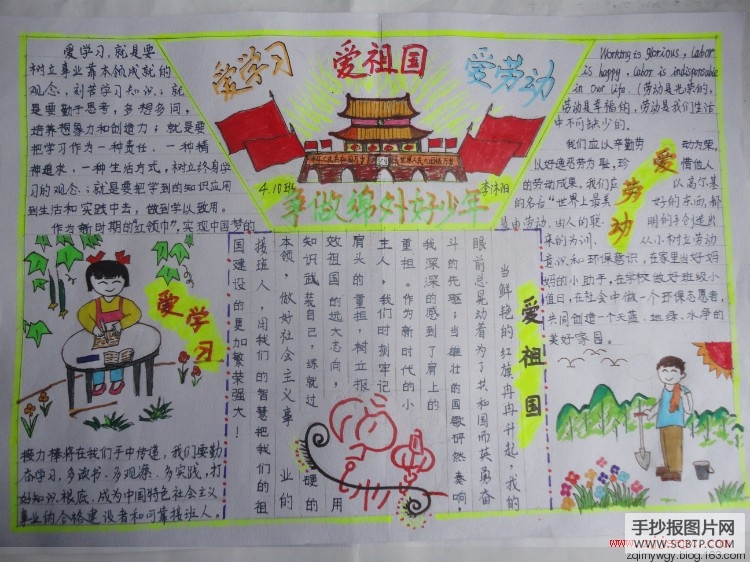 爱学习 爱祖国 爱劳动
4.10班
争做锦外好少年
爱学习,就是要
树立事业靠本领成就的
观念,刻苦学习知识;就
是要勤于思考,多想多问,
培养想象力和创造力;就是要
把学习作为一种责任、一种精
神追求、一种生活方式,树立终身学
习的观念;就是要把学到的知识应用
到生活和实践中去,做到学以致用。
作为新时期的红领巾,实现中国梦的
爱学习
接力棒将在我们手中传递,我们要勤
奋学习,多读书、多观察、多实践,打
好知识根底,成为中国特色社会主义
事业的合格建设者和可靠接班人。
爱祖国
当鲜艳的红旗冉冉升起,我的
眼前总晃动着为了共和国而英勇奋
斗的先驱;当雄壮的国歌砰然奏响,
我深深的感到了肩上的
重担。作为新时代的小
主人,我们时刻牢记
肩头的重担,树立报
效祖国的远大志向,用
知识武装自己,练就过硬的
本领,做好社会主义事业的
接班人,用我们的智慧把我们的祖
国建设的更加繁荣强大!
Working is glorious, labor
is happy, labor is indispensable
in our life.(劳动是光荣的,
劳动是幸福的,劳动是我们生活
中不可缺少的。
我们应以辛勤劳动为荣,
以好逸恶劳为耻,珍惜他人
的劳动成果。我们应以高尔基
的名言“世界上最美好的东西,都
是由劳动、由人的聪明的手创造出
来的”为训,从小树立劳动
意识和环保意识,在家里当好妈
妈的小助手,在学校做好班级小
值日,在社会中做一个环保志愿者,
共同创造一个天蓝、地绿、水净的
美好家园。
爱劳动
手抄报图片网
WWW.SCBTP.COM
zqlmywgy.blog.163.com